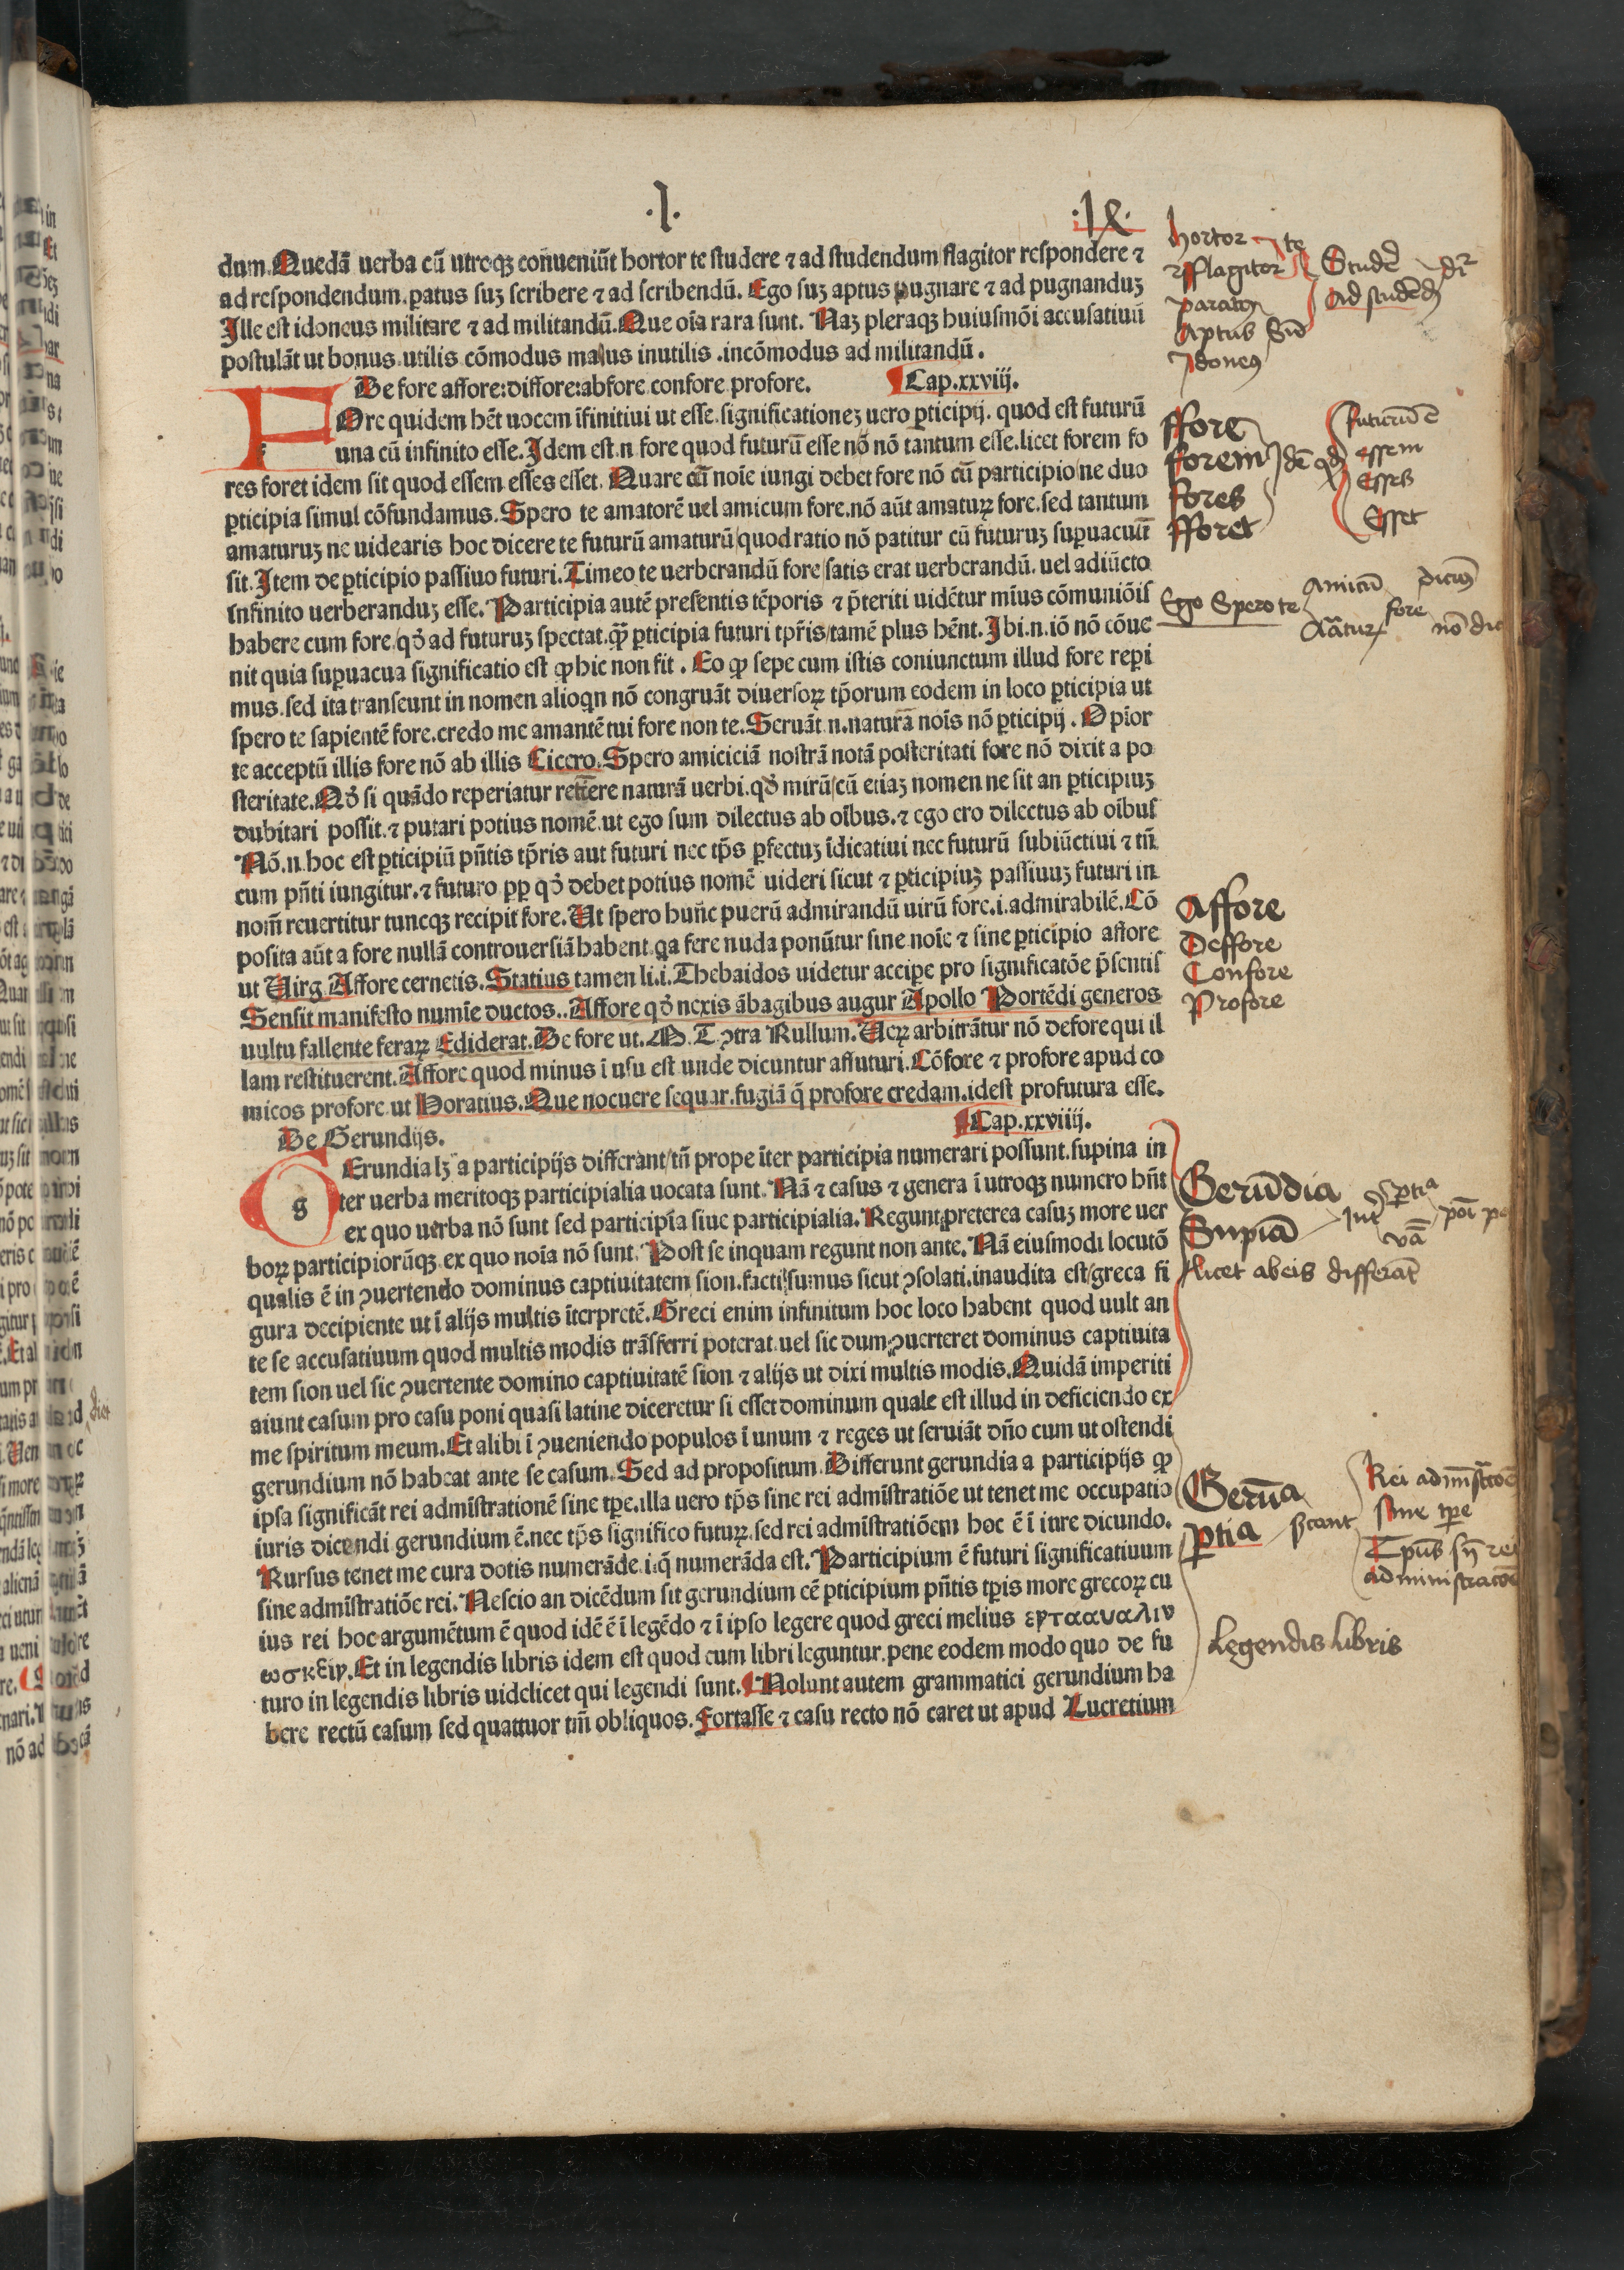 .I. .ix.
dum. Quedā uerba cū utroqꝫ conueniūt hortor te studere ⁊ ad studendum flagitor respondere ⁊
ad respondendum. patus suꝫ scribere ⁊ ad scribendū. Ego suꝫ aptus pugnare ⁊ ad pugnanduꝫ
Ille est idoneus militare ⁊ ad militandū. Que oīa rara sunt. Naꝫ pleraqꝫ huiusmōi accusatiuū
postulāt ut bonus utilis cōmodus malus inutilis .incōmodus ad militandū.
De fore affore:diffore:abfore confore profore. Cap.xxviij.
FOre quidem hēt uocem īfinitiui ut esse. significationeꝫ uero ꝑticipij. quod est futurū
una cū infinito esse. Idem est.n fore quod futurū esse nō nō tantum esse. licet forem fo
res foret idem sit quod essem esses esset. Quare cū noīe iungi debet fore nō cū participio/ne duo
ꝑticipia simul cōfundamus. Spero te amatorē uel amicum fore. nō aūt amaturꝝ fore. sed tantum
amaturuꝫ ne uidearis hoc dicere te futurū amaturū/quod ratio nō patitur cū futuruꝫ suꝑuacuū
sit. Item de ꝑticipio passiuo futuri. Timeo te uerberandū fore/satis erat uerberandū. uel adiūcto
infinito uerberanduꝫ esse. Participia autē presentis tēporis ⁊ p̄teriti uidētur mīus cōmuniōis
habere cum fore/qd̓ ad futuruꝫ spectat. qꝫ ꝑticipia futuri tp̄ris/tamē plus hēnt. Ibi.n.iō nō cōue
nit quia suꝑuacua significatio est ꝙ hic non fit. Eo ꝙ sepe cum istis coniunctum illud fore reꝑi
mus. sed ita transeunt in nomen alioqn nō congruāt diuersorꝝ tp̄orum eodem in loco ꝑticipia ut
spero te sapientē fore. credo me amantē tui fore non te. Seruāt.n.naturā nois nō ꝑticipij. Opior
te acceptū illis fore nō ab illis Cicero. Spero amiciciā nostrā notā posteritati fore nō dixit a po
steritate. Qd̓ si quādo reperiatur retinere naturā uerbi. qd̓ mirū/cū etiaꝫ nomen ne sit an ꝑticipiuꝫ
dubitari possit. ⁊ putari potius nomē. ut ego sum dilectus ab oībus. ⁊ ego ero dilectus ab oībus
Nō.n.hoc est ꝑticipiū pn̄tis tp̄ris aut futuri nec tp̄s ꝑfectuꝫ īdicatiui nec futurū subiūctiui ⁊ tn̄
cum pn̄ti iungitur. ⁊ futuro ꝓp qd̓ debet potius nomē uideri sicut ⁊ ꝑticipiuꝫ passiuuꝫ futuri in
nom̄ reuertitur tuncqꝫ recipit fore. Ut spero hunc puerū admirandū uirū fore. i. admirabilē. Cō
posita aūt a fore nullā controuersiā habent qa fere nuda ponūtur sine noīe ⁊ sine ꝑticipio affore
ut Uirg. Affore cernetis. Statius tamen li.i. Thebaidos uidetur accipe pro significatōe p̄sentis
Sensit manifesto numīe ductos.. Affore qd̓ nexis ābagibus augur Apollo Portēdi generos
uultu fallente ferarꝝ Ediderat. De fore ut. M. T. ꝯtra Rullum. Uerꝝ arbitrātur nō defore qui il
lam restituerent. Affore quod minus ī usu est unde dicuntur affuturi. Cōfore ⁊ profore apud co
micos profore ut Horatius. Que nocuere sequar. fugiā q̄ profore credam. idest profutura esse.
De Gerundijs. Cap.xxviiij.
gErundia lꝫ a participijs differant/tn̄ prope īter participia numerari possunt. supina in
ter uerba meritoqꝫ participialia uocata sunt. Nā ⁊ casus ⁊ genera ī utroqꝫ numero hn̄t
ex quo uerba nō sunt sed participīa siue participialia. Regunt preterea casuꝫ more uer
borꝝ participiorūqꝫ ex quo noīa nō sunt. Post se inquam regunt non ante. Nā eiusmodi locutō
qualis ē in ꝯuertendo dominus captiuitatem sion. facti sumus sicut ꝯsolati. inaudita est/greca fi
gura decipiente ut ī alijs multis īterpretē. Greci enim infinitum hoc loco habent quod uult an
te se accusatiuum quod multis modis trāsferri poterat. uel sic dum ꝯuerteret dominus captiuita
tem sion uel sic ꝯuertente domino captiuitatē sion ⁊ alijs ut dixi multis modis. Quidā imperiti
aiunt casum pro casu poni quasi latine diceretur si esset dominum quale est illud in deficiendo ex
me spiritum meum. Et alibi ī ꝯueniendo populos ī unum ⁊ reges ut seruiāt dn̄o cum ut ostendi
gerundium nō habeat ante se casum. Sed ad propositum. Differunt gerundia a participijs ꝙ
ipsa significāt rei admīstrationē sine tꝑe. illa uero tp̄s sine rei admīstratiōe ut tenet me occupatio
iuris dicendi gerundium ē. nec tp̄s significo futurꝝ. sed rei admīstratiōem hoc ē ī iure dicundo.
Rursus tenet me cura dotis numerāde. i. q̄ numerāda est. Participium ē futuri significatiuum
sine admīstratiōe rei. Nescio an dicēdum sit gerundium eē ꝑticipium pn̄tis tꝑis more grecorꝝ cu
ius rei hoc argumētum ē quod idē ē ī legēdo ⁊ ī ipso legere quod greci melius εντααναλιν
ωσκειν. Et in legendis libris idem est quod cum libri leguntur. pene eodem modo quo de fu
turo in legendis libris uidelicet qui legendi sunt. Nolunt autem grammatici gerundium ha
bere rectū casum sed quattuor tm̄ obliquos. Fortasse ⁊ casu recto nō caret ut apud Lucretium
hortor te
⁊ fflagitor Studē dr̄
paratus ad studēdū
Aptus Sū
Idoneꝰ
ffore futurū ē
fforem Idē qd̓ essem
fores Esses
fforet Esset
Ego Spero te amicū fore
nō
Affore
Deffore
Confore
Profore
Gerūdia
Supīa
licet ab eis differāt
Gerūa Rei admīstratōē
sine tꝑe
ꝑtia Tp̄us sn̄ rei
administratōē
Legendis libris